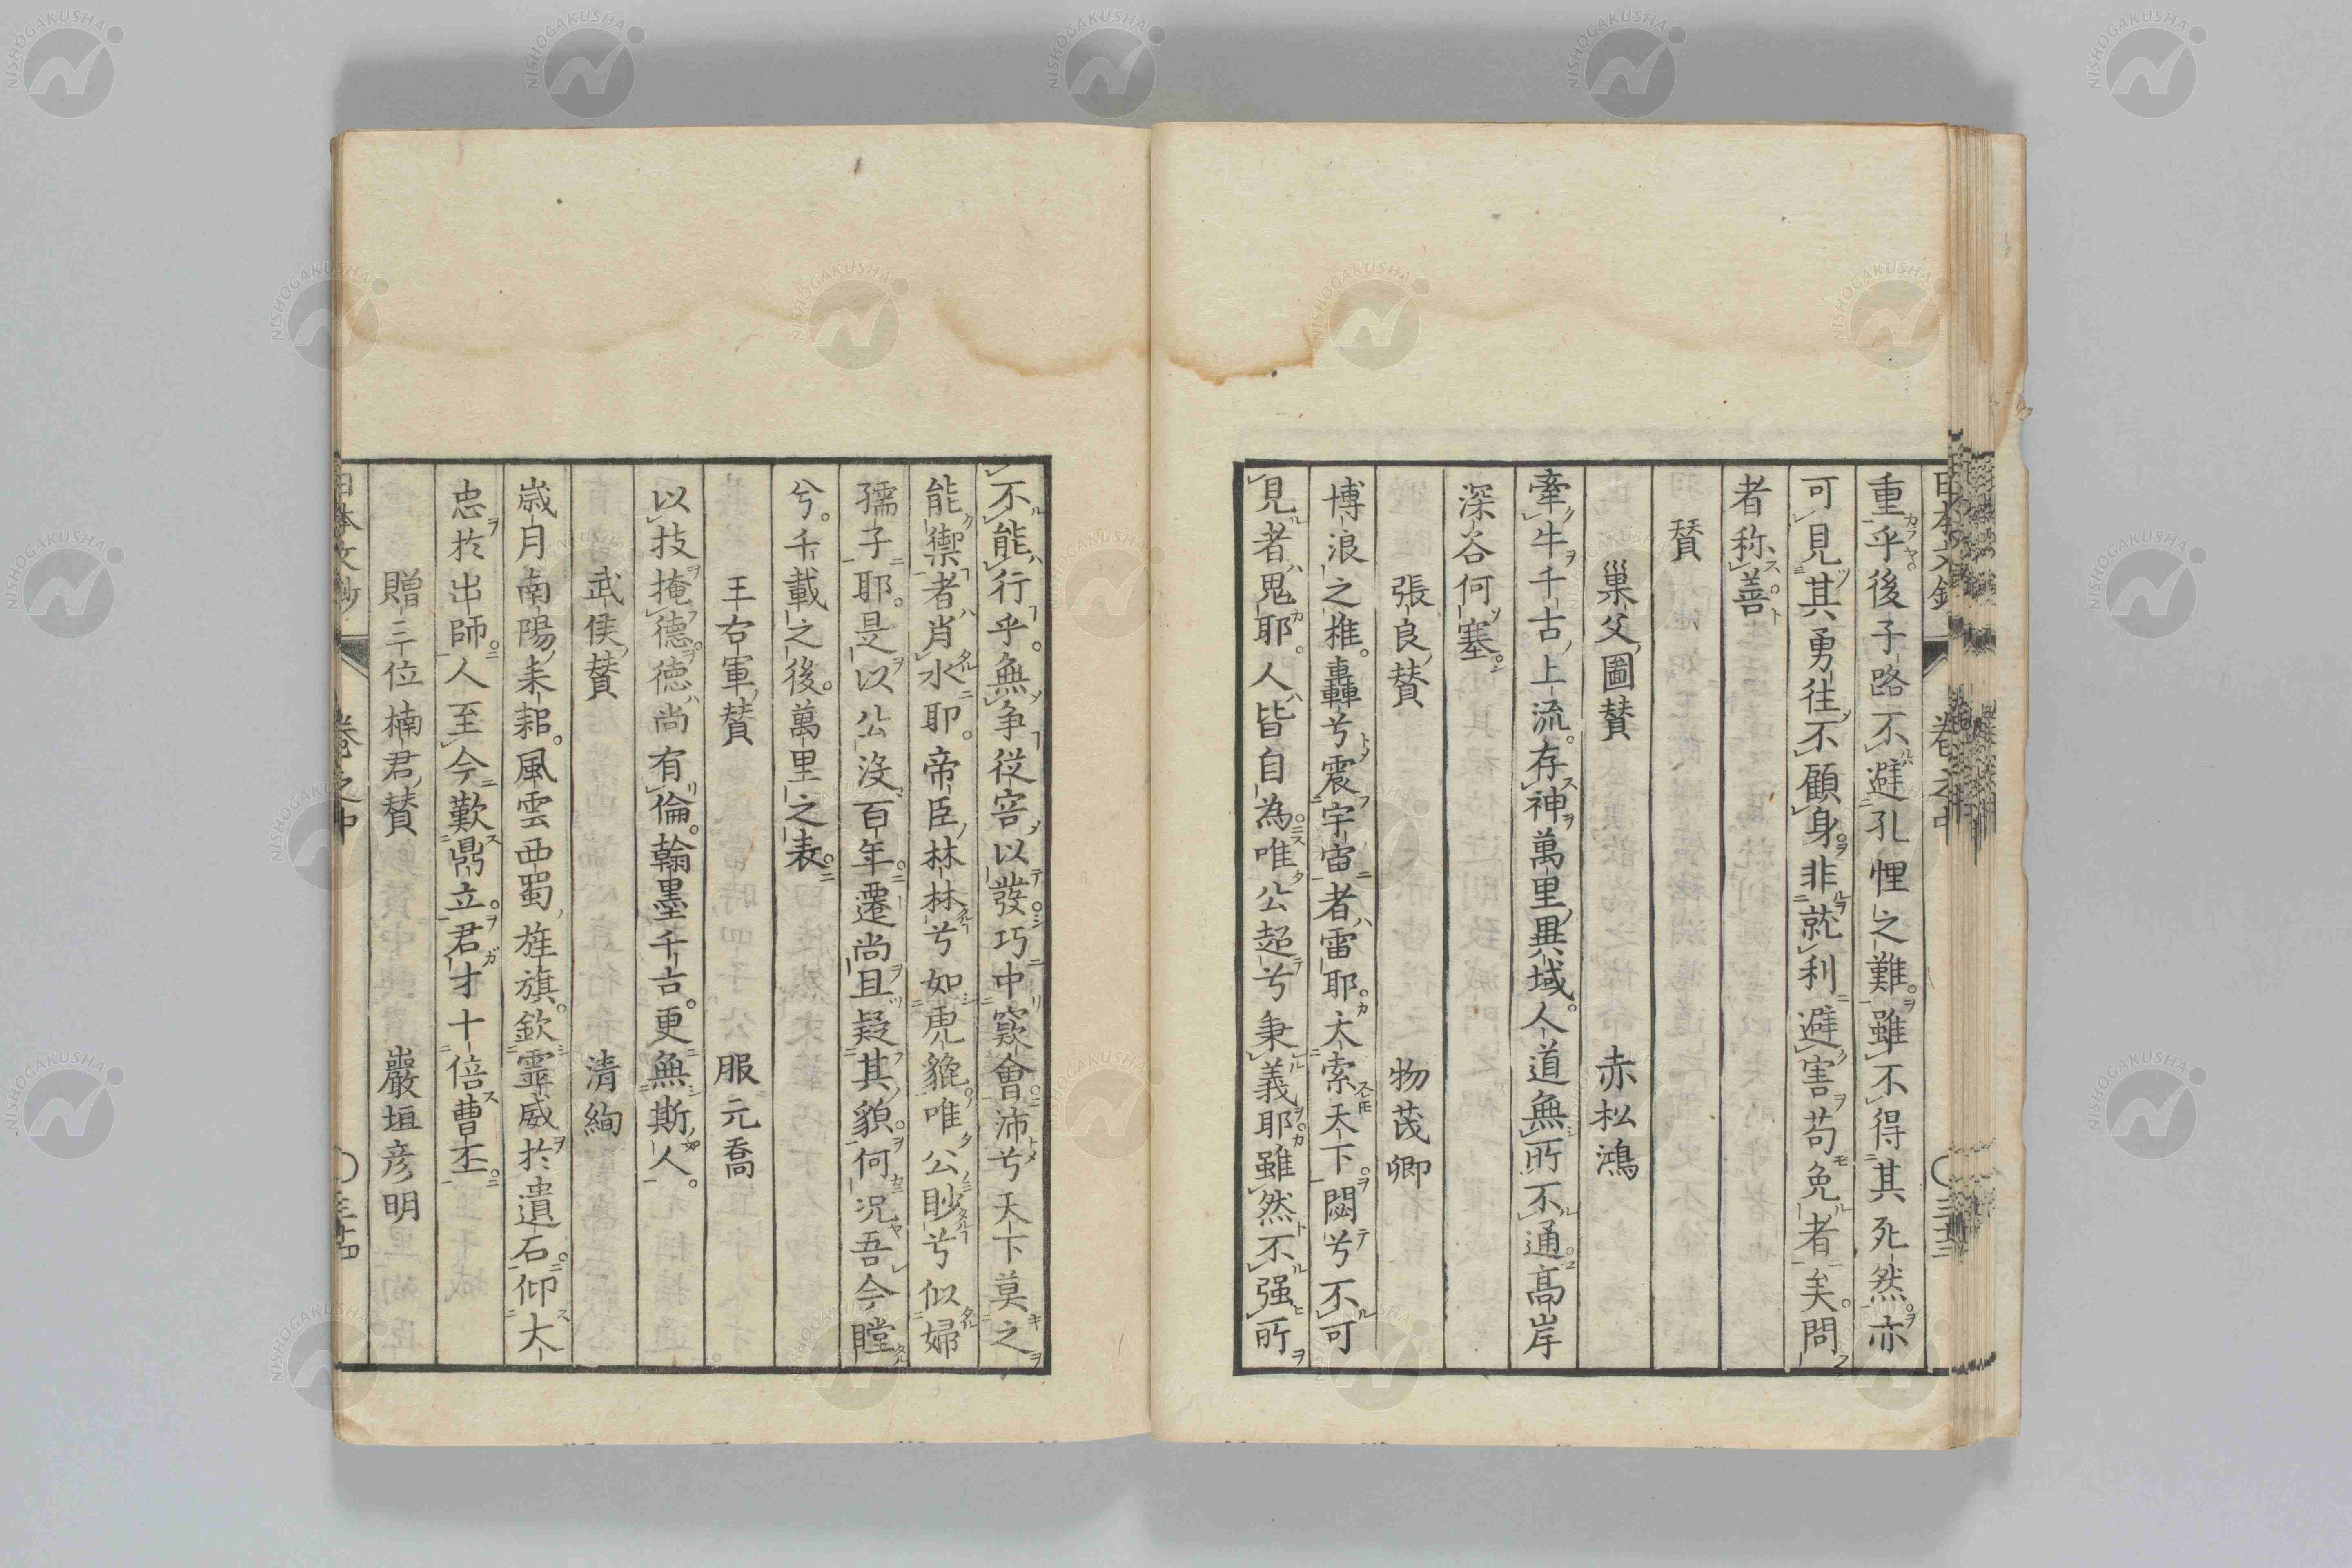 重乎後子路不避孔悝之難。雖不得其死然。亦
可見其勇往不顧身。非就利避害苟免者矣。問
者称善。
賛
巢父圖賛 赤松鴻
牽牛千古上流。存神萬里異域。人道無所不通。高岸
深谷何塞。
張良賛 物茂卿
博浪之椎。轟兮震宇宙者雷耶。大索天下。闃兮不可
見者鬼耶。人皆自為。唯公超兮秉義耶。雖然不强所
不能行乎。無爭從容以發。巧中窾會。沛兮天下莫之
能禦者肖水耶。帝臣林林兮如虎貔。唯公眇兮似婦
孺子耶。是以公沒百年。遷尚且疑其貌。何況吾今瞠
兮。千載之後。萬里之表。
王右軍賛 服元喬
以技掩德。德尚有倫。翰墨千古。更無斯人。
武侯賛 清絢
歳月南陽耒耜。風雲西蜀旌旗。欽霊威於遺石。仰大
忠於出師。人至今歎鼎立。君才十倍曹丕。
贈三位楠君賛 巖垣彦明
日本文鈔 卷之中 三十四